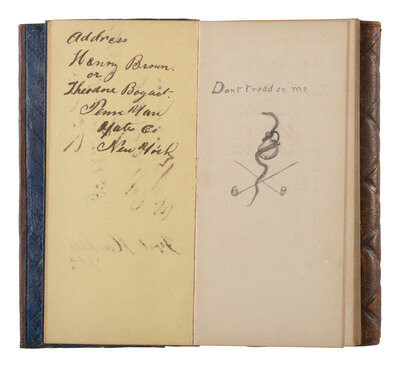 Address
Henry Brown.
or
Theodore Bogart
Penn Yan
Yates Co
New York
Dont tread on me